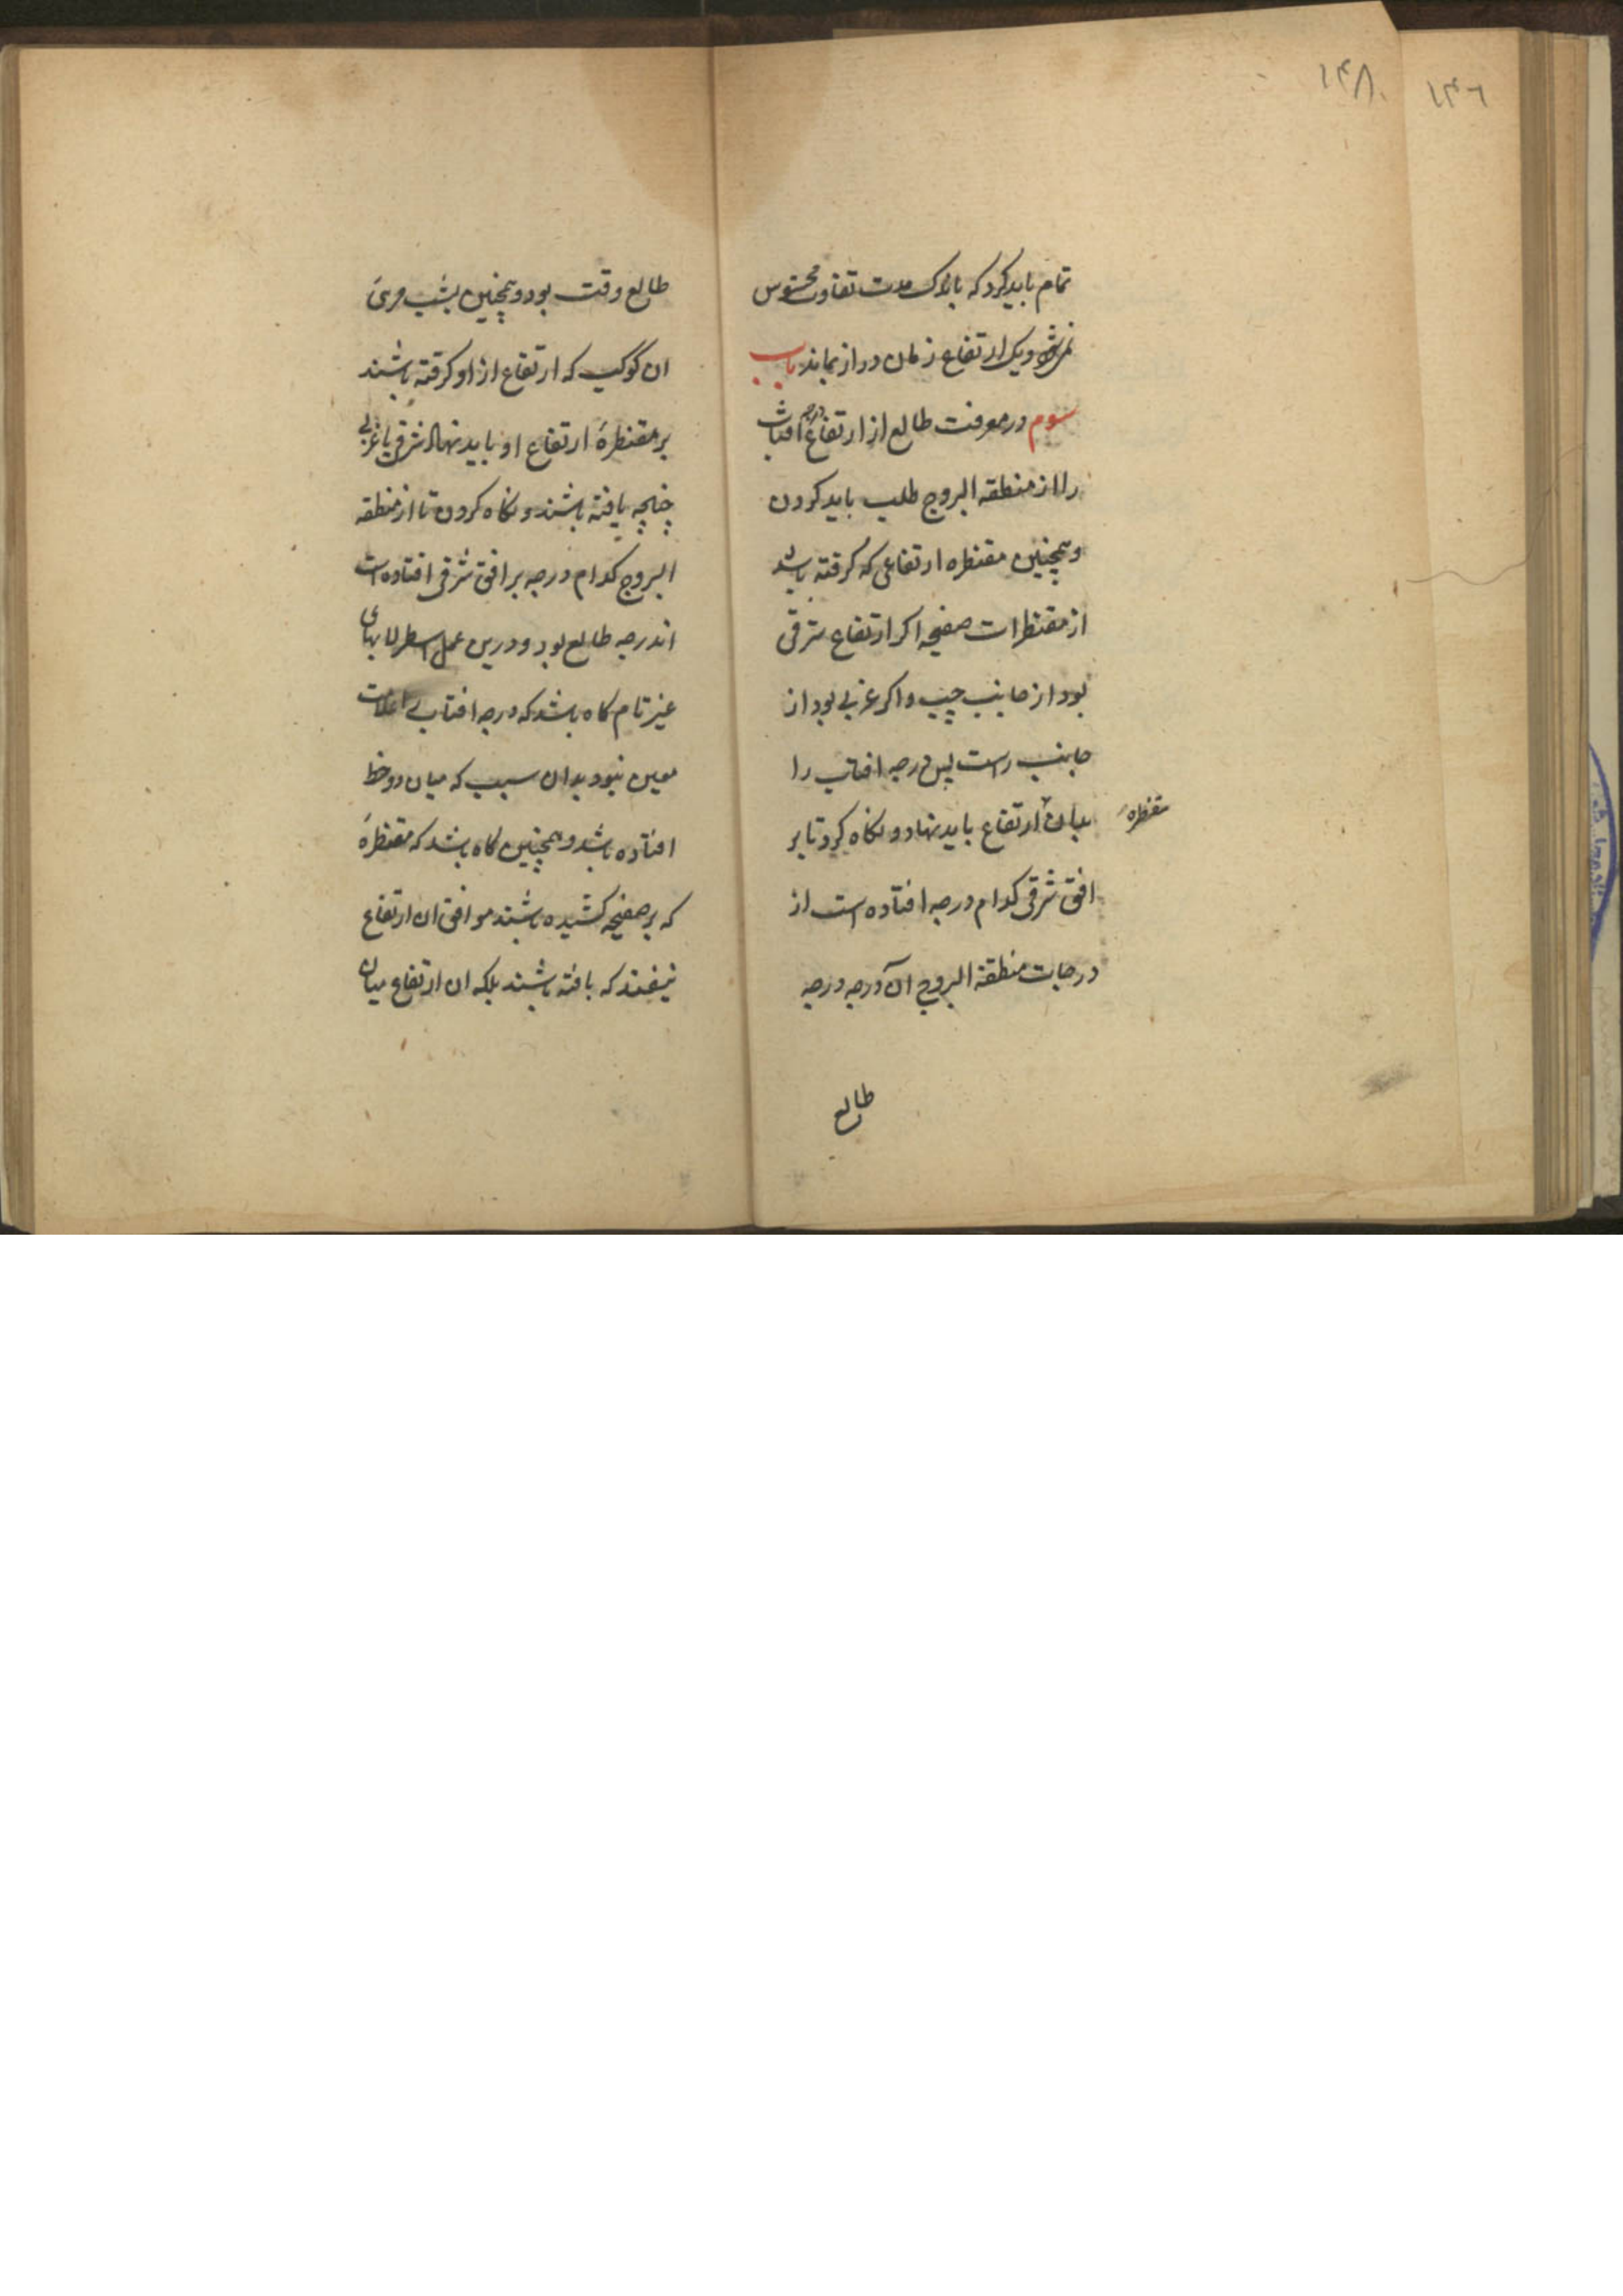 ۱۴۸
۱۴۶
تمام باید کرد که باندک مدت تفاوت محسوس
نمیشود و یک ارتفاع زمان دراز بماند باب
سوم در معرفت طالع از ارتفاع درجه افتاب
را از منطقه البروج طلب باید کردن
و همچنین مقنطره ارتفاعی که گرفته باشد
از مقنطرات صفیحه اکر ارتفاع شرقی
بود از جانب چپ و اکر غربی بود از
جانب راست پس درجه افتاب را
بدان ارتفاع باید نهاد و نکاه کرد تا بر
مقنطرهٔ
افق شرقی کدام درجه افتاده است از
درجات منطقة البروج آن درجه درجه
طالع
طالع وقت بود و همچنین بشب مریٔ
ان کوکب که ارتفاع از او کرفته باشند
بر مقنطرهٔ ارتفاع او باید نهاد شرقی یا غربی
چنانچه یافته باشند و نکاه کردن تا از منطقه
البروج کدام درجه بر افق شرقی افتاده است
اندرجه طالع بود و درین عمل اسطرلابهای
غیر تام کاه باشد که درجه افتاب
معین نبود بدان سبب که میان دو خط
افتاده باشد و همچنین کاه باشد که مقنطرهٔ
که بر صفیحه کشیده باشند موافق ان ارتفاع
نیفتد که یافته باشند بلکه ان ارتفاع میان